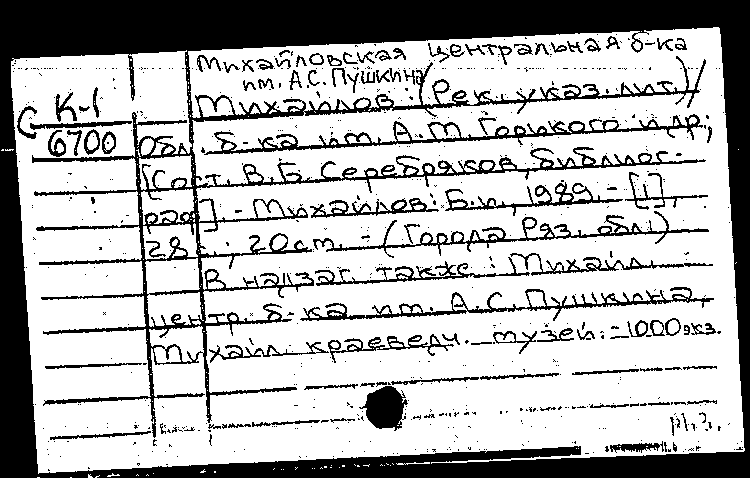 Михайловская центральная б-ка
им. А.С. Пушкина
К-1
6700
Михайлов: (Рек. указ. лит.) /
Обл. б-ка им. А.М. Горького и др.;
[Сост. В.Б. Серебряков, библиог-
раф]. - Михайлов: Б.и., 1989. - [1],
28 с.; 20 см. - (Города Ряз. обл.)
В надзаг. также: Михайл.
центр. б-ка им. А.С. Пушкина,
Михайл. краеведч. музей. - 1000 экз.